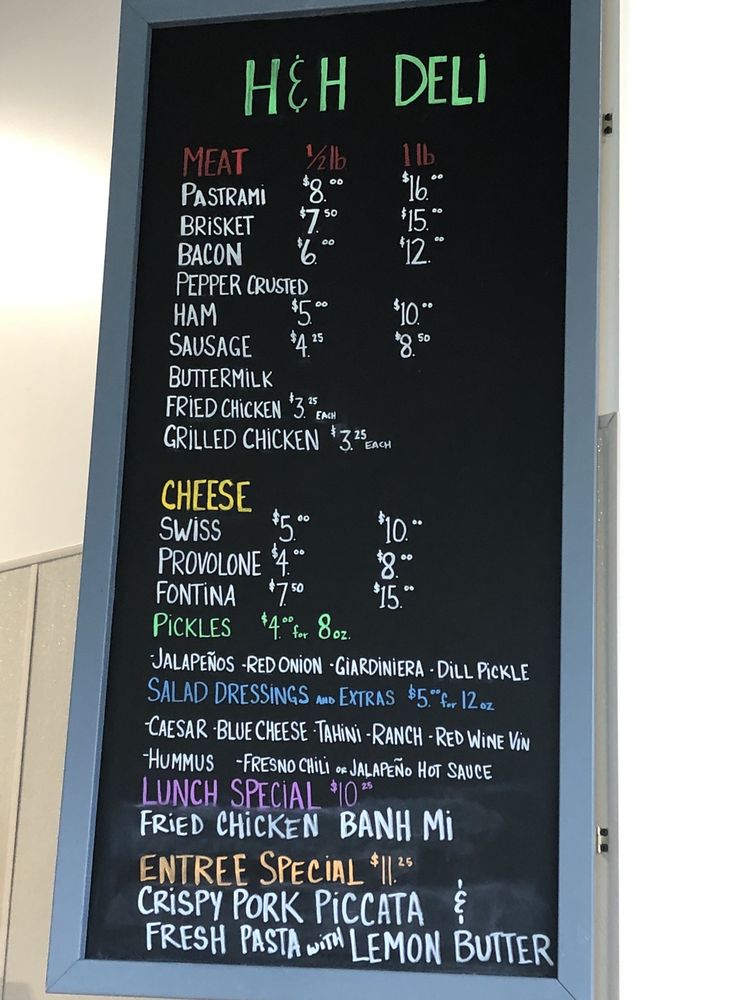 H & H DELI
MEAT ½ lb 1 lb
PASTRAMI $8.00 $16.00
BRISKET $7.50 $15.00
BACON $6.00 $12.00
PEPPER CRUSTED
HAM $5.00 $10.00
SAUSAGE $4.25 $8.50
BUTTERMILK
FRIED CHICKEN $3.25 EACH
GRILLED CHICKEN $3.25 EACH
CHEESE
SWISS $5.00 $10.00
PROVOLONE $4.00 $8.00
FONTINA $7.50 $15.00
PICKLES $4.00 for 8 oz.
-JALAPEÑOS -RED ONION -GIARDINIERA -DILL PICKLE
SALAD DRESSINGS AND EXTRAS $5.00 for 12 oz
-CAESAR -BLUE CHEESE -TAHINI -RANCH -RED WINE VIN
-HUMMUS -FRESNO CHILI or JALAPEÑO HOT SAUCE
LUNCH SPECIAL $10.25
FRIED CHICKEN BANH MI
ENTREE SPECIAL $11.25
CRISPY PORK PICCATA &
FRESH PASTA WITH LEMON BUTTER